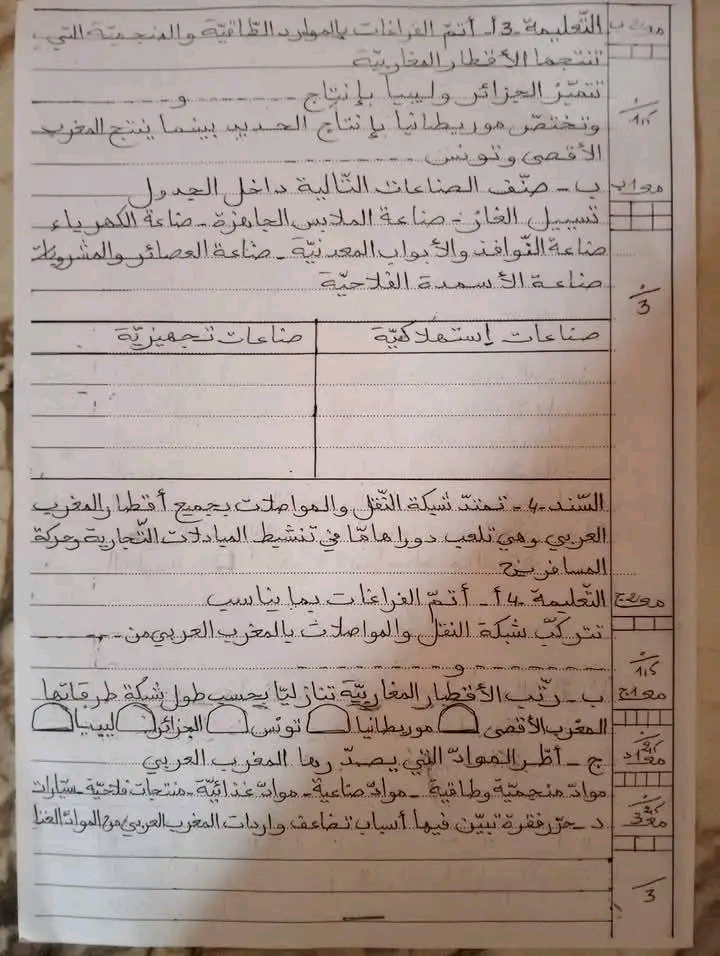 التّعليمة -3- أ- أتمّ الفراغات بالموارد الطّاقيّة والمنجميّة التي
تنتجها الأقطار المغاربيّة
تتميّز الجزائر وليبيا بإنتاج ---------- و ----------
1,5
وتختصّ موريطانيا بإنتاج الحديد بينما ينتج المغرب
الأقصى وتونس ----------
مع1ب
ب- صنّف الصناعات التّالية داخل الجدول
تسييل الغاز - صناعة الملابس الجاهزة - صناعة الكهرباء
صناعة النّوافذ والأبواب المعدنيّة - صناعة العصائر والمشروبات
صناعة الأسمدة الفلاحيّة
3
صناعات إستهلاكيّة
صناعات تجهيزيّة
السّند -4- تمتدّ شبكة النّقل والمواصلات بجميع أقطار المغرب
العربي وهي تلعب دورا هامّا في تنشيط المبادلات التّجارية وحركة
المسافرين
التّعليمة -4- أ- أتمّ الفراغات بما يناسب
تتركّب شبكة النقل والمواصلات بالمغرب العربي من ------
---------- و ----------
1,5
مع1ج
ب- رتّب الأقطار المغاربيّة تنازليّا بحسب طول شبكة طرقاتها
المغرب الأقصى موريطانيا تونس الجزائر ليبيا
ج- أطّر الموادّ التي يصدّرها المغرب العربي
موادّ منجميّة وطاقية - موادّ صناعية - موادّ غذائيّة - منتجات فلاحيّة - سيّارات
مع3
د- حرّر فقرة تبيّن فيها أسباب تضاعف واردات المغرب العربي من الموادّ الغذا
3